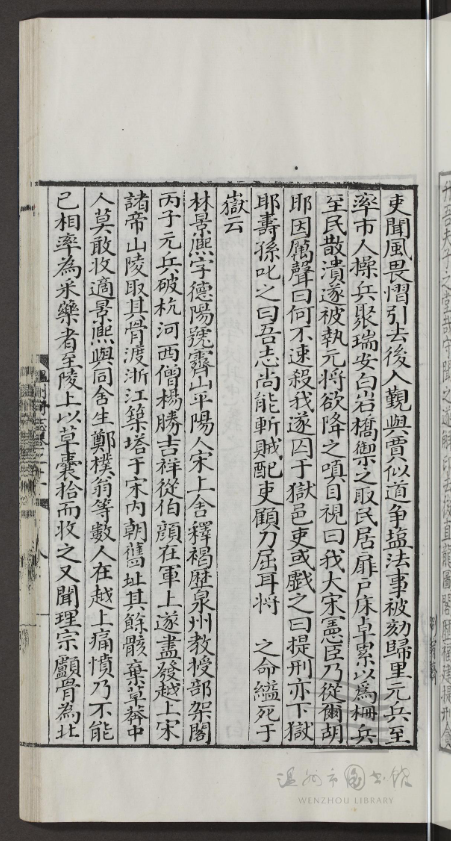 吏聞風畏慴引去後入覲與賈似道爭塩法事被劾歸里元兵至
率市人操兵聚瑞安白岩橋禦之取民居扉戸床卓累以為柵兵
至民散潰遂被執元將欲降之瞋目視曰我大宋憲臣乃從爾胡
耶因厲聲曰何不速殺我遂囚于獄邑吏或戲之曰提刑亦下獄
耶壽孫叱之曰吾志尚能斬賊配吏顧刀屈耳將 之命縊死于
嶽云
林景熈字德陽號霽山平陽人宋上舍釋褐歷泉州教授部架閣
丙子元兵破杭河西僧楊勝吉祥從伯顔在軍上遂盡發越上宋
諸帝山陵取其骨渡浙江築塔于宋内朝舊址其餘骸棄草莽中
人莫敢收適景熈與同舍生鄭樸翁等數人在越上痛憤乃不能
已相率為采藥者至陵上以草囊拾而收之又聞理宗顱骨為北
温州市圖書館
WENZHOU LIBRARY